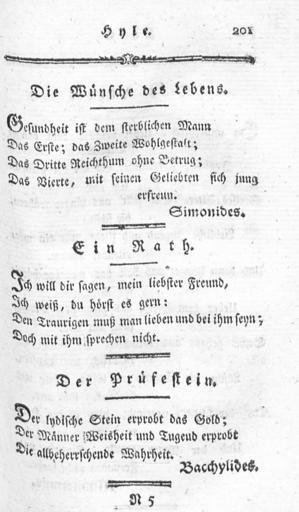 Hyle. 201
Die Wünsche des Lebens.
Gesundheit ist dem sterblichen Mann
Das Erste; das Zweite Wohlgestalt;
Das Dritte Reichthum ohne Betrug;
Das Vierte, mit seinen Geliebten sich jung
erfreun.
Simonides.
Ein Rath.
Ich will dir sagen, mein liebster Freund,
Ich weiß, du hörst es gern:
Den Traurigen muß man lieben und bei ihm seyn;
Doch mit ihm sprechen nicht.
Der Prüfestein.
Der lydische Stein erprobt das Gold;
Der Männer Weisheit und Tugend erprobt
Die allbeherrschende Wahrheit.
Bacchylides.
N 5